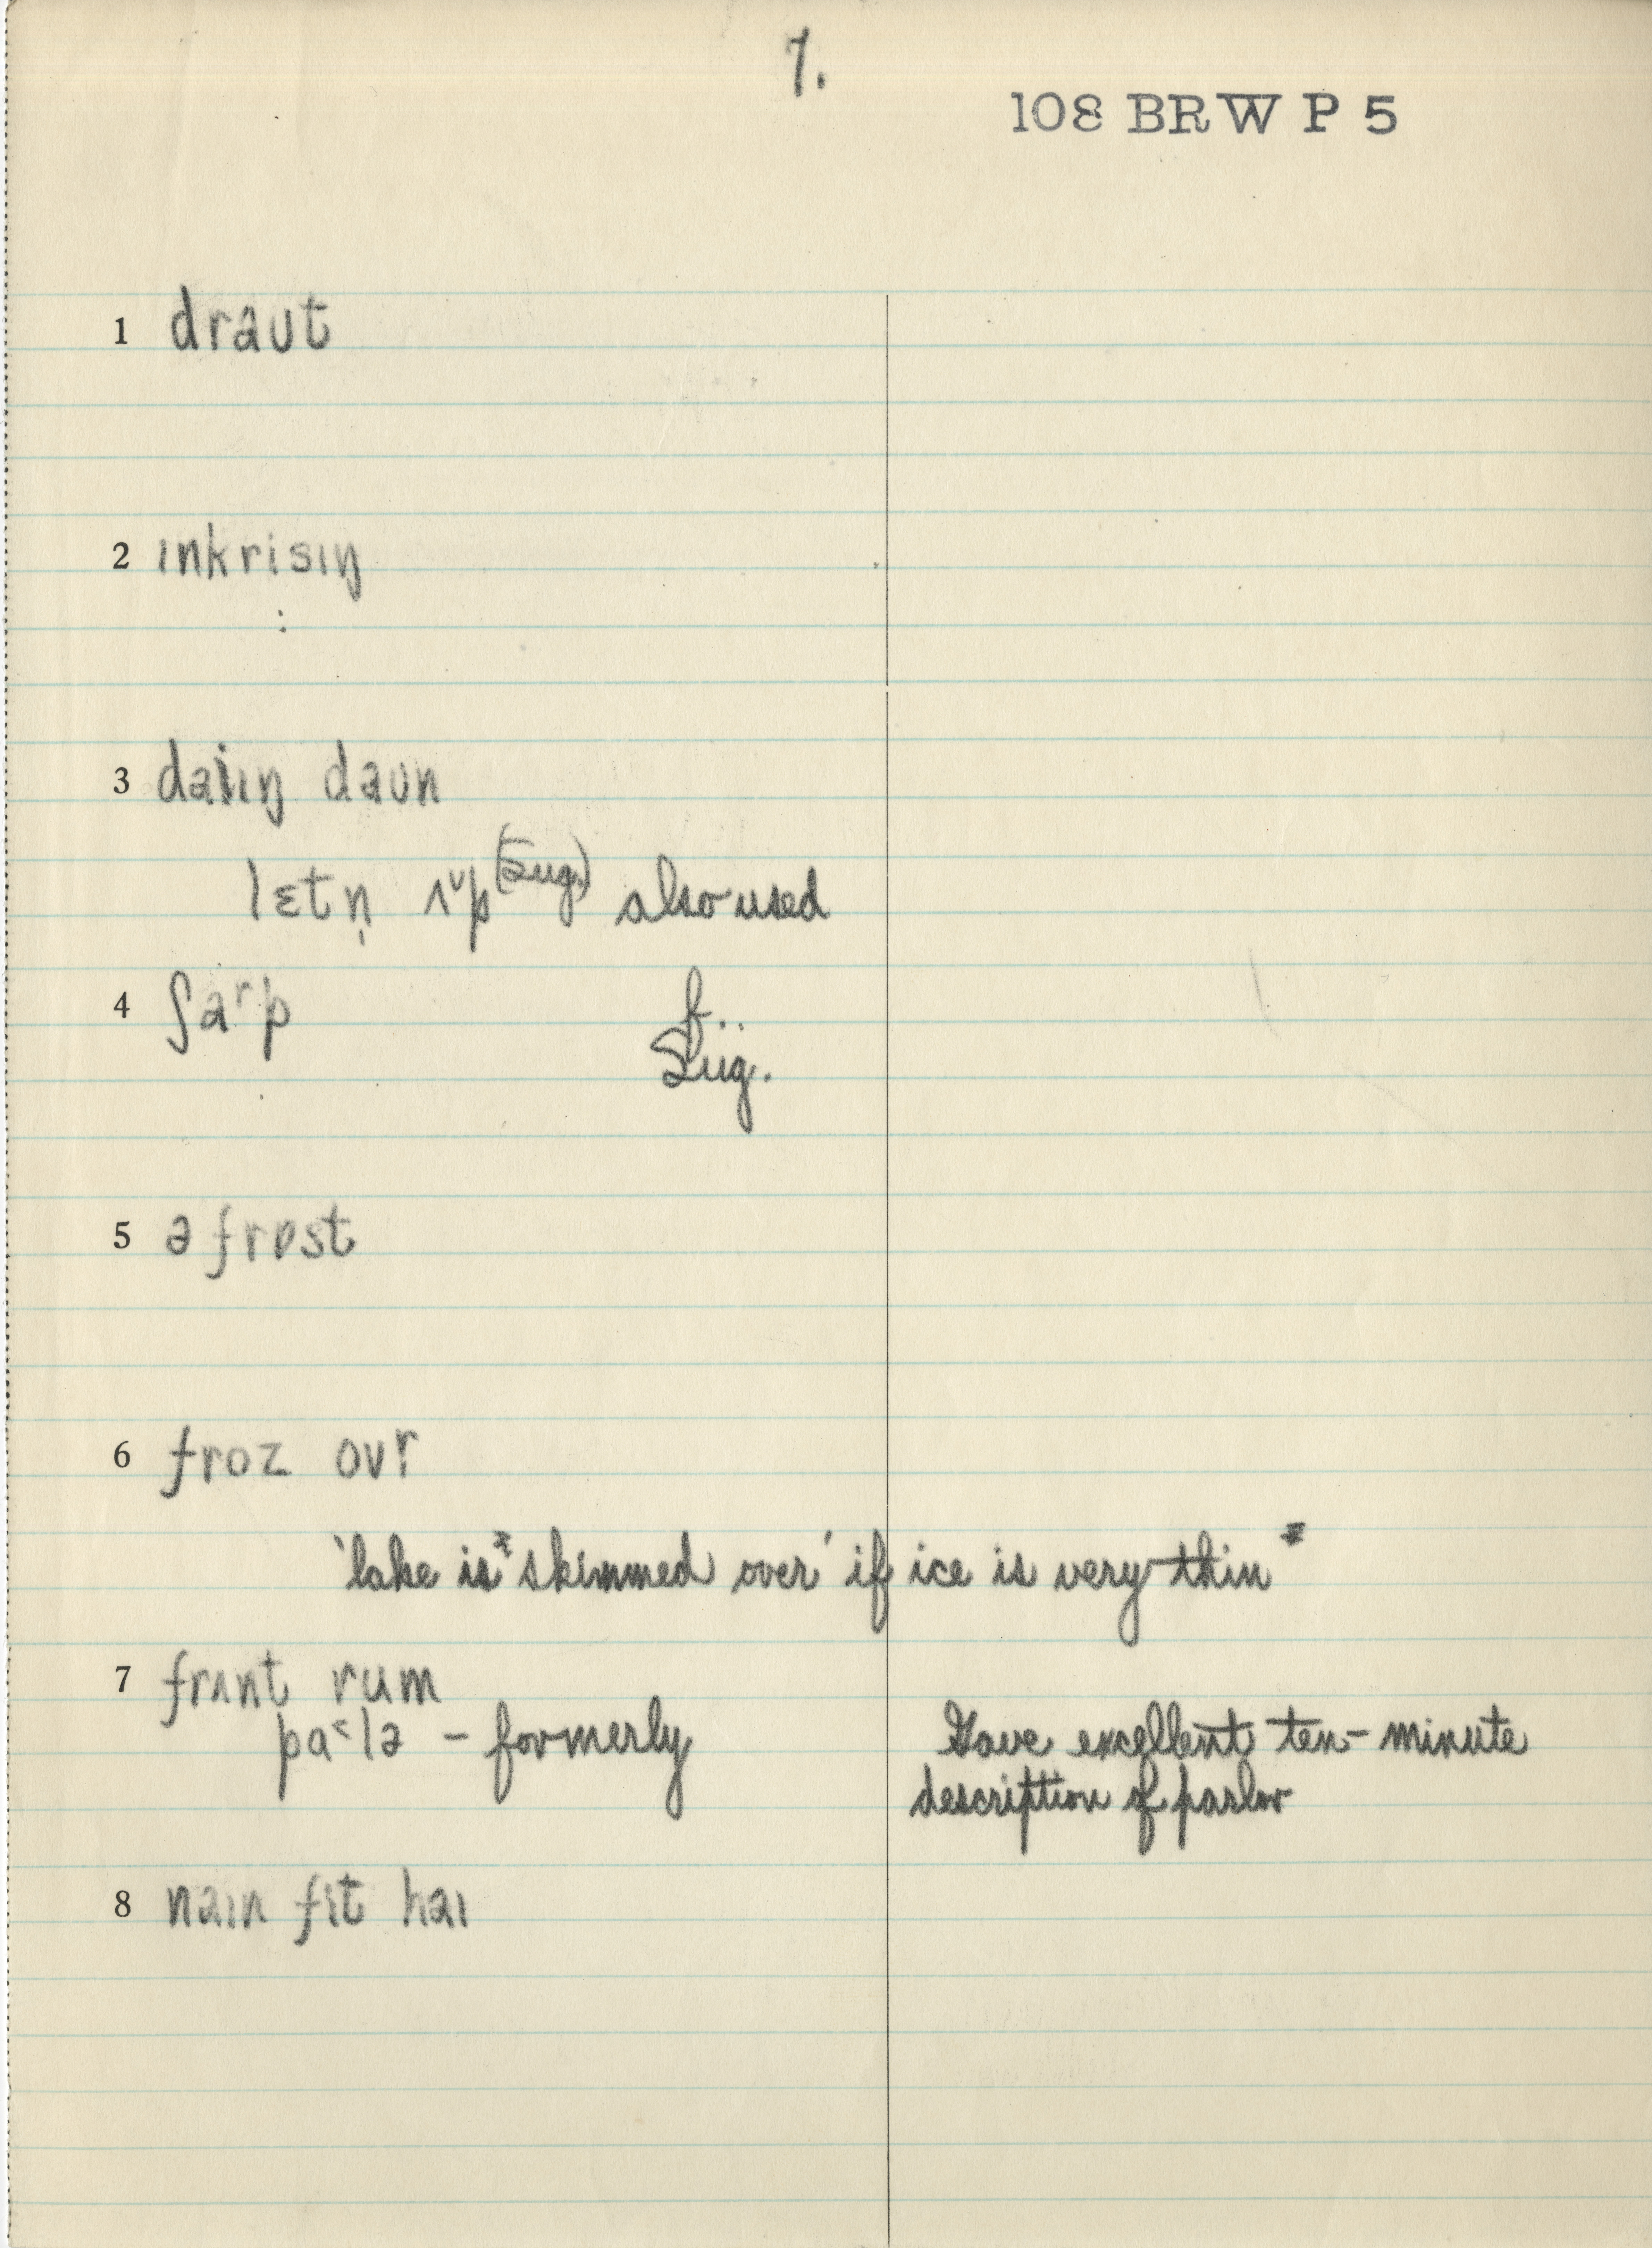 7.
108 BRW P 5
1 draʊt
2 ɪnkrisɪŋ
3 daiɪŋ daʊn
lɛtn̩ ʌᵛp (Sug.) also used
4 ʃaʳp f..
Sug.
5 ə frɒst
6 froz ovr
'lake is* skimmed over' if ice is very thin*
7 frʌnt rum
pa˂lə – formerly Gave excellent ten-minute
description of parlor
8 naɪn fit haɪ